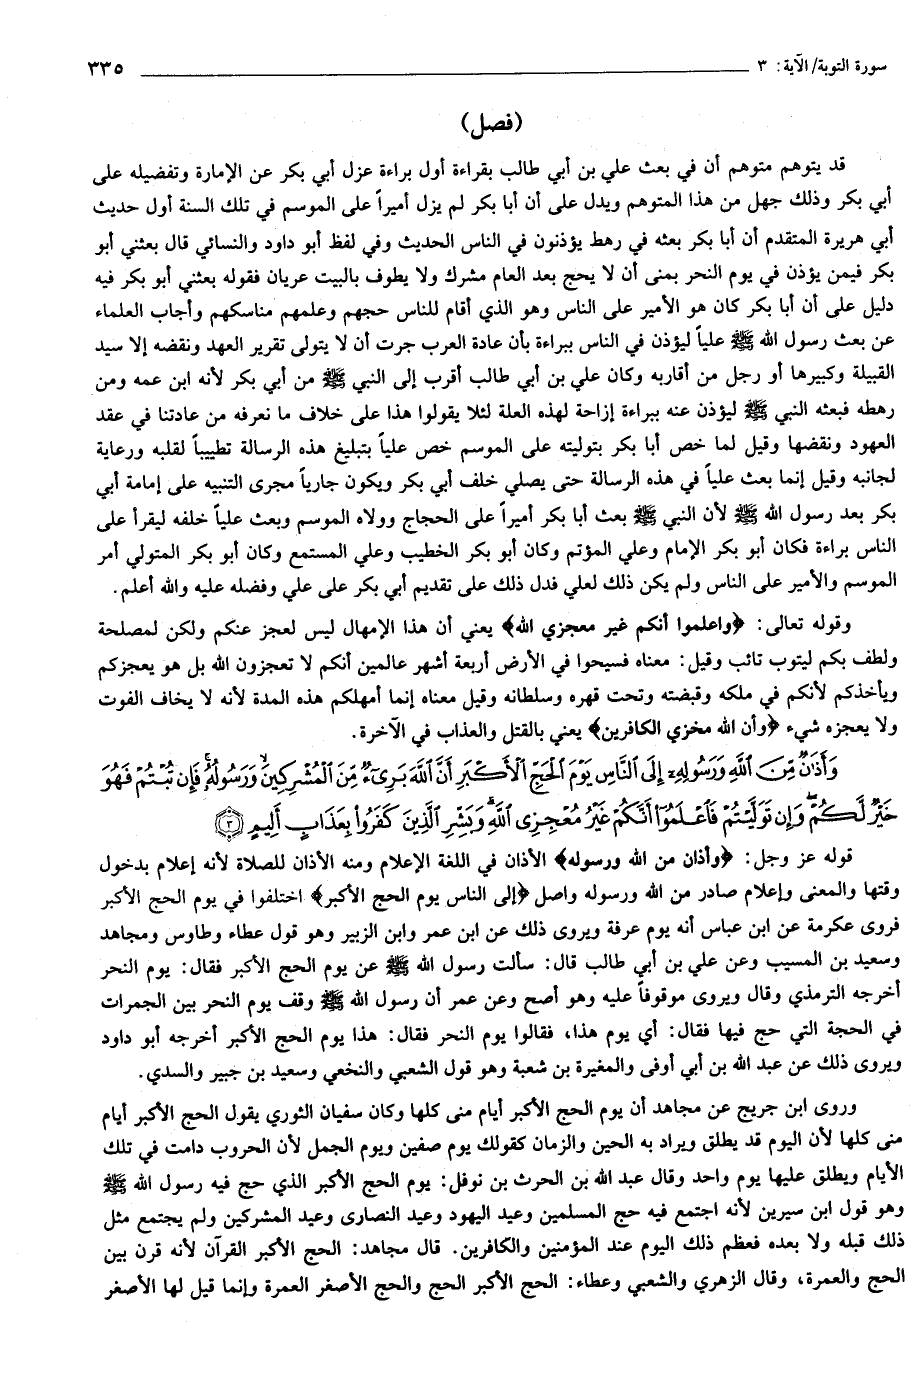 سورة التوبة/ الآية: ٣ ٣٣٥
(فصل)
قد يتوهم متوهم أن في بعث علي بن أبي طالب بقراءة أول براءة عزل أبي بكر عن الإمارة وتفضيله على
أبي بكر وذلك جهل من هذا المتوهم ويدل على أن أبا بكر لم يزل أميراً على الموسم في تلك السنة أول حديث
أبي هريرة المتقدم أن أبا بكر بعثه في رهط يؤذنون في الناس الحديث وفي لفظ أبو داود والنسائي قال بعثني أبو
بكر فيمن يؤذن في يوم النحر بمنى أن لا يحج بعد العام مشرك ولا يطوف بالبيت عريان فقوله بعثني أبو بكر فيه
دليل على أن أبا بكر كان هو الأمير على الناس وهو الذي أقام للناس حجهم وعلمهم مناسكهم وأجاب العلماء
عن بعث رسول الله ﷺ علياً ليؤذن في الناس ببراءة بأن عادة العرب جرت أن لا يتولى تقرير العهد ونقضه إلا سيد
القبيلة وكبيرها أو رجل من أقاربه وكان علي بن أبي طالب أقرب إلى النبي ﷺ من أبي بكر لأنه ابن عمه ومن
رهطه فبعثه النبي ﷺ ليؤذن عنه ببراءة إزاحة لهذه العلة لئلا يقولوا هذا على خلاف ما نعرفه من عادتنا في عقد
العهود ونقضها وقيل لما خص أبا بكر بتوليته على الموسم خص علياً بتبليغ هذه الرسالة تطييباً لقلبه ورعاية
لجانبه وقيل إنما بعث علياً في هذه الرسالة حتى يصلي خلف أبي بكر ويكون جارياً مجرى التنبيه على إمامة أبي
بكر بعد رسول الله ﷺ لأن النبي ﷺ بعث أبا بكر أميراً على الحجاج وولاه الموسم وبعث علياً خلفه ليقرأ على
الناس براءة فكان أبو بكر الإمام وعلي المؤتم وكان أبو بكر الخطيب وعلي المستمع وكان أبو بكر المتولي أمر
الموسم والأمير على الناس ولم يكن ذلك لعلي فدل ذلك على تقديم أبي بكر على علي وفضله عليه والله أعلم.
وقوله تعالى: ﴿واعلموا أنكم غير معجزي الله﴾ يعني أن هذا الإمهال ليس لعجز عنكم ولكن لمصلحة
ولطف بكم ليتوب تائب وقيل: معناه فسيحوا في الأرض أربعة أشهر عالمين أنكم لا تعجزون الله بل هو يعجزكم
ويأخذكم لأنكم في ملكه وقبضته وتحت قهره وسلطانه وقيل معناه إنما أمهلكم هذه المدة لأنه لا يخاف الفوت
ولا يعجزه شيء ﴿وأن الله مخزي الكافرين﴾ يعني بالقتل والعذاب في الآخرة.
وَأَذَٰنٌ مِّنَ ٱللَّهِ وَرَسُولِهِۦٓ إِلَى ٱلنَّاسِ يَوْمَ ٱلْحَجِّ ٱلْأَكْبَرِ أَنَّ ٱللَّهَ بَرِىٓءٌ مِّنَ ٱلْمُشْرِكِينَ ۙ وَرَسُولُهُۥ ۚ فَإِن تُبْتُمْ فَهُوَ
خَيْرٌ لَّكُمْ ۖ وَإِن تَوَلَّيْتُمْ فَٱعْلَمُوٓا۟ أَنَّكُمْ غَيْرُ مُعْجِزِى ٱللَّهِ ۗ وَبَشِّرِ ٱلَّذِينَ كَفَرُوا۟ بِعَذَابٍ أَلِيمٍ ﴿٣﴾
قوله عز وجل: ﴿وأذان من الله ورسوله﴾ الأذان في اللغة الإعلام ومنه الأذان للصلاة لأنه إعلام بدخول
وقتها والمعنى وإعلام صادر من الله ورسوله واصل ﴿إلى الناس يوم الحج الأكبر﴾ اختلفوا في يوم الحج الأكبر
فروى عكرمة عن ابن عباس أنه يوم عرفة ويروى ذلك عن ابن عمر وابن الزبير وهو قول عطاء وطاوس ومجاهد
وسعيد بن المسيب وعن علي بن أبي طالب قال: سألت رسول الله ﷺ عن يوم الحج الأكبر فقال: يوم النحر
أخرجه الترمذي وقال ويروى موقوفاً عليه وهو أصح وعن عمر أن رسول الله ﷺ وقف يوم النحر بين الجمرات
في الحجة التي حج فيها فقال: أي يوم هذا، فقالوا يوم النحر فقال: هذا يوم الحج الأكبر أخرجه أبو داود
ويروى ذلك عن عبد الله بن أبي أوفى والمغيرة بن شعبة وهو قول الشعبي والنخعي وسعيد بن جبير والسدي.
وروى ابن جريج عن مجاهد أن يوم الحج الأكبر أيام منى كلها وكان سفيان الثوري يقول الحج الأكبر أيام
منى كلها لأن اليوم قد يطلق ويراد به الحين والزمان كقولك يوم صفين ويوم الجمل لأن الحروب دامت في تلك
الأيام ويطلق عليها يوم واحد وقال عبد الله بن الحرث بن نوفل: يوم الحج الأكبر الذي حج فيه رسول الله ﷺ
وهو قول ابن سيرين لأنه اجتمع فيه حج المسلمين وعيد اليهود وعيد النصارى وعيد المشركين ولم يجتمع مثل
ذلك قبله ولا بعده فعظم ذلك اليوم عند المؤمنين والكافرين. قال مجاهد: الحج الأكبر القرآن لأنه قرن بين
الحج والعمرة، وقال الزهري والشعبي وعطاء: الحج الأكبر الحج والحج الأصغر العمرة وإنما قيل لها الأصغر